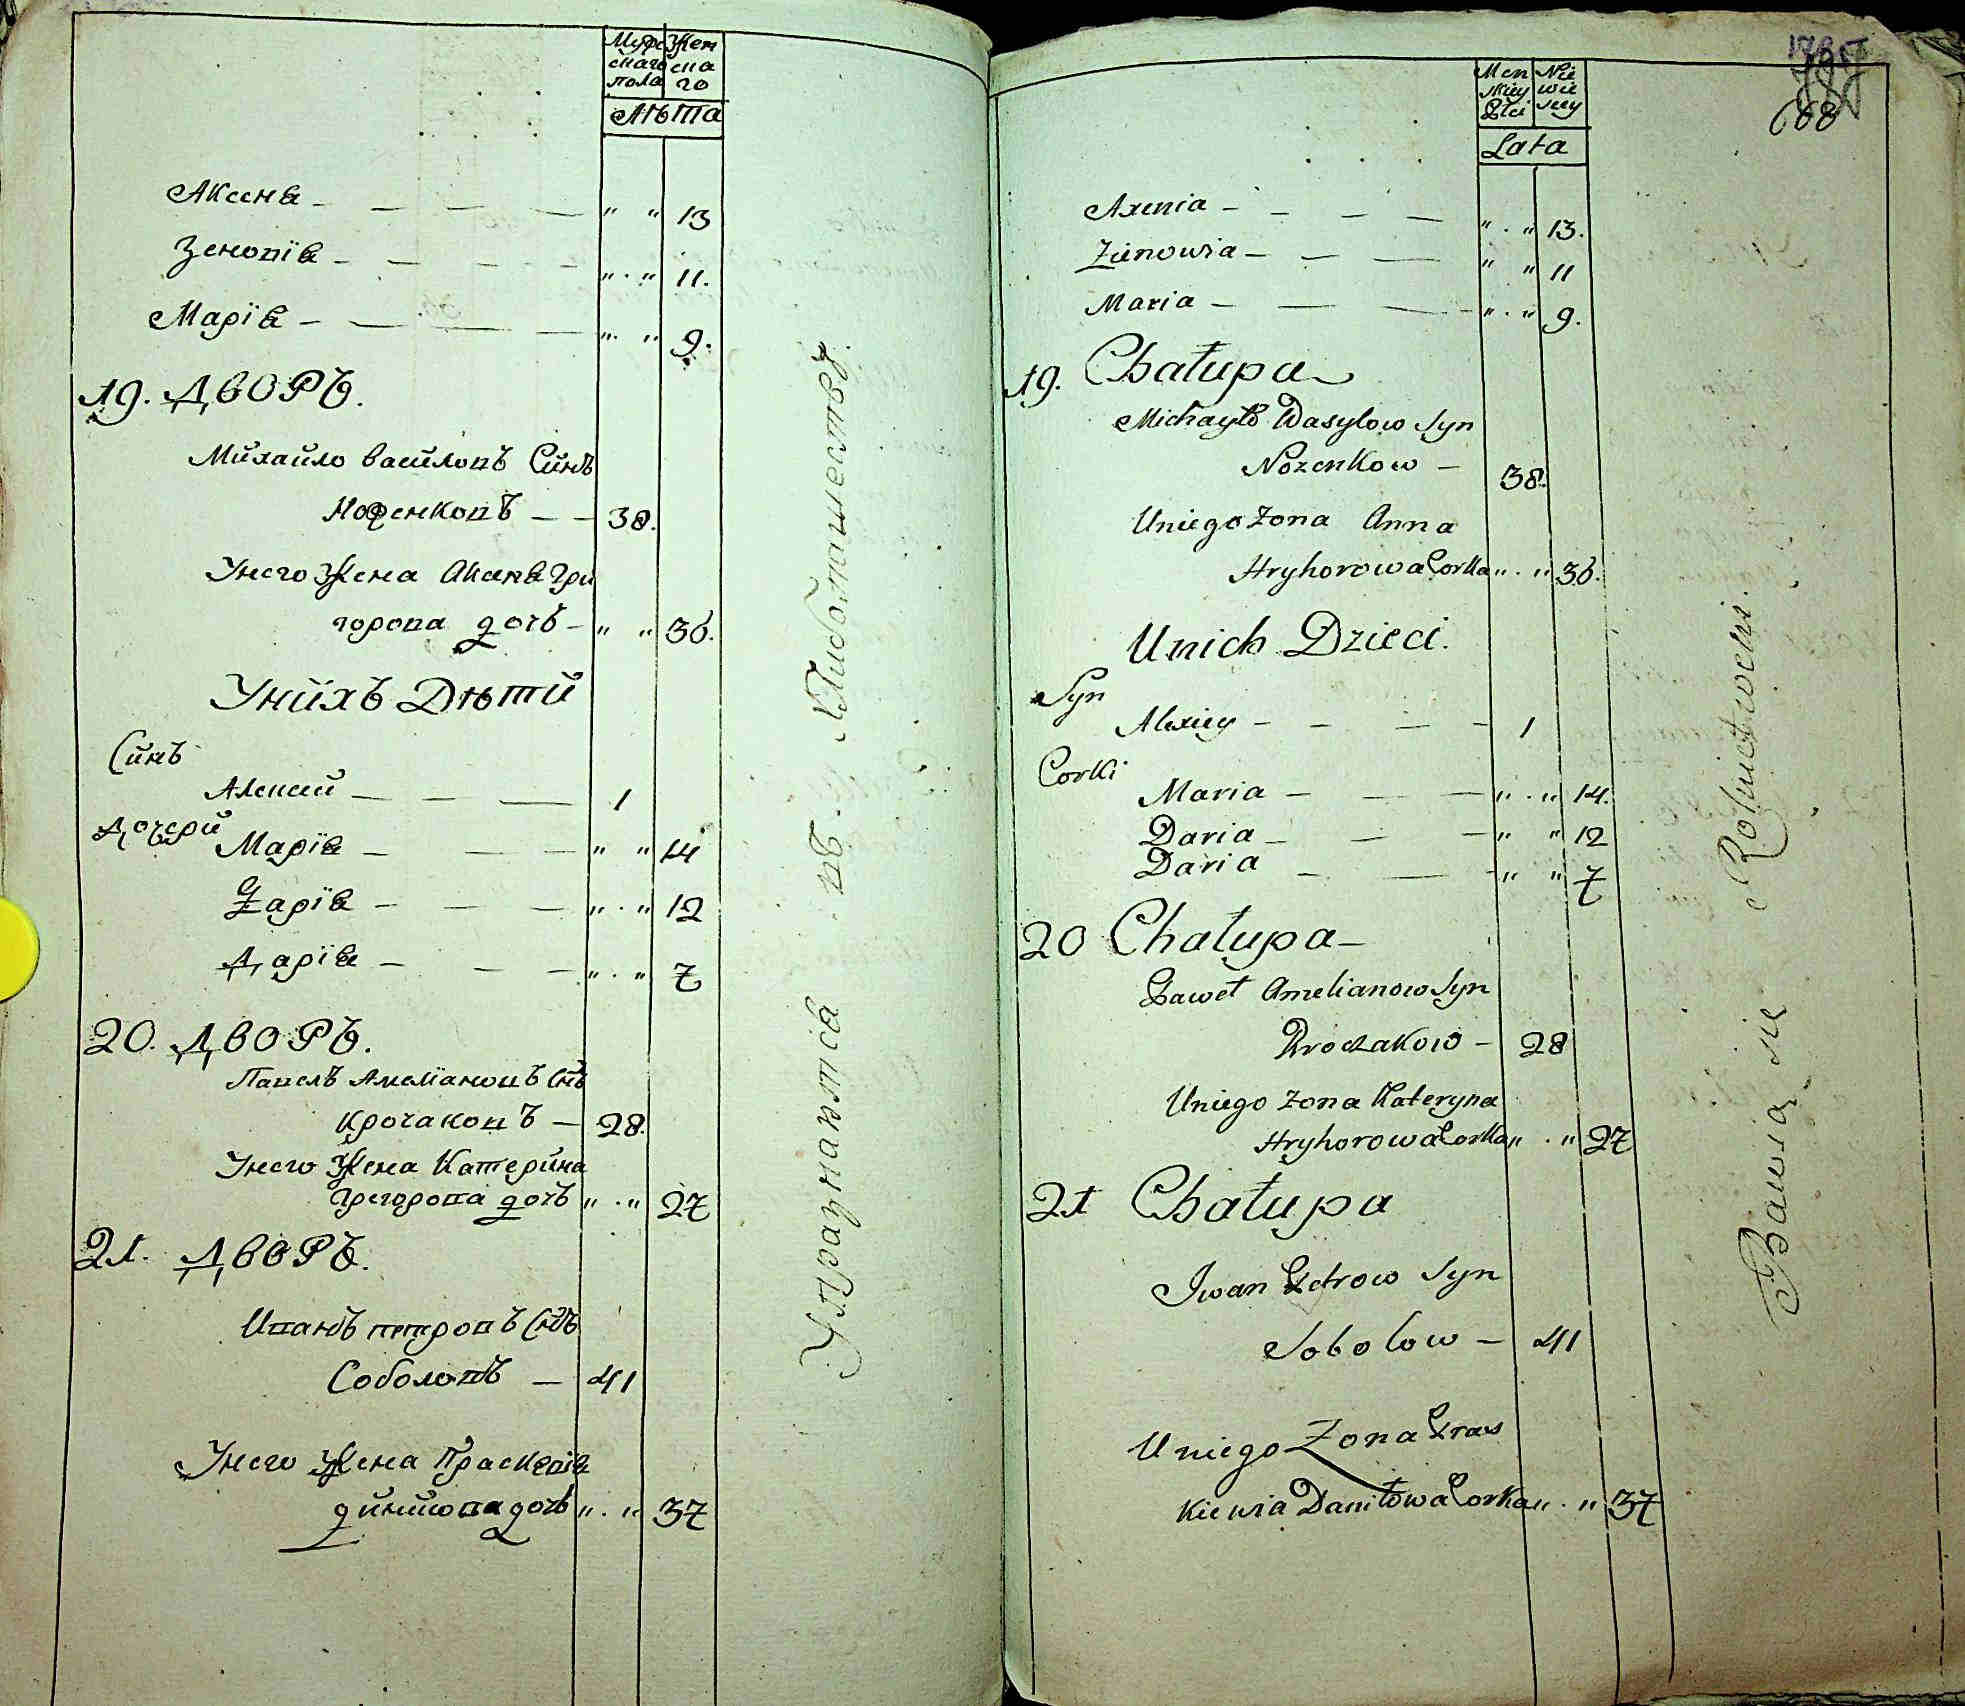 Муже Жен
скаго ска
пола го
Лѣта
Аксенѣ — — — — " " 13
Зеновіѣ — — — — " . " 11.
Маріѣ — — — — " " 9.
19. Дворъ.
Михайло василовъ Синъ
Нозенковъ — — 38.
Унего Жена Аканѣ Гри
горова дочь — " " 36.
Унихъ Дѣти
Синъ
Алексей — — — 1
Дочери
Маріѣ — — — " " 14
Дарїѣ — — — " . " 12
Дарїѣ — — — " . " 7
20. Дворъ.
Павелъ АмеліановъСнъ
Крочаковъ — 28.
Унего Жена Катерина
Григорова дочь " . " 27
21. Дворъ.
Иванъ петровъ Снъ
Соболовъ — 41
Унего Жена Прасковіѣ
данилова дочь " . " 37
Упразнаются въ Хлибопашествѣ.
Men Nie
skiey wie
Płci skiey
Lata
668
Axenia — — — — " . " 13.
Zienowia — — — " " 11
Maria — — — " . " 9.
19. Chałupa
Michayło Wasylow Syn
Nozenkow — 38.
Uniego Zona Anna
Hryhorowa Corka " . " 36.
Unich Dzieci.
Syn
Alexiey — — — — 1
Corki
Maria — — — " . " 14.
Daria — — — " " 12
Daria — — — " " 7
20 Chałupa —
Paweł Amelianow Syn
Kroczakow — 28
Uniego Zona Kateryna
Hryhorowa Corka " . " 27
21 Chałupa
Jwan Petrow Syn
Sobolow — 41
Uniego Zona Pras
kiewia Daniłowa Corka " . " 37
Bawią się Rolnictwem.